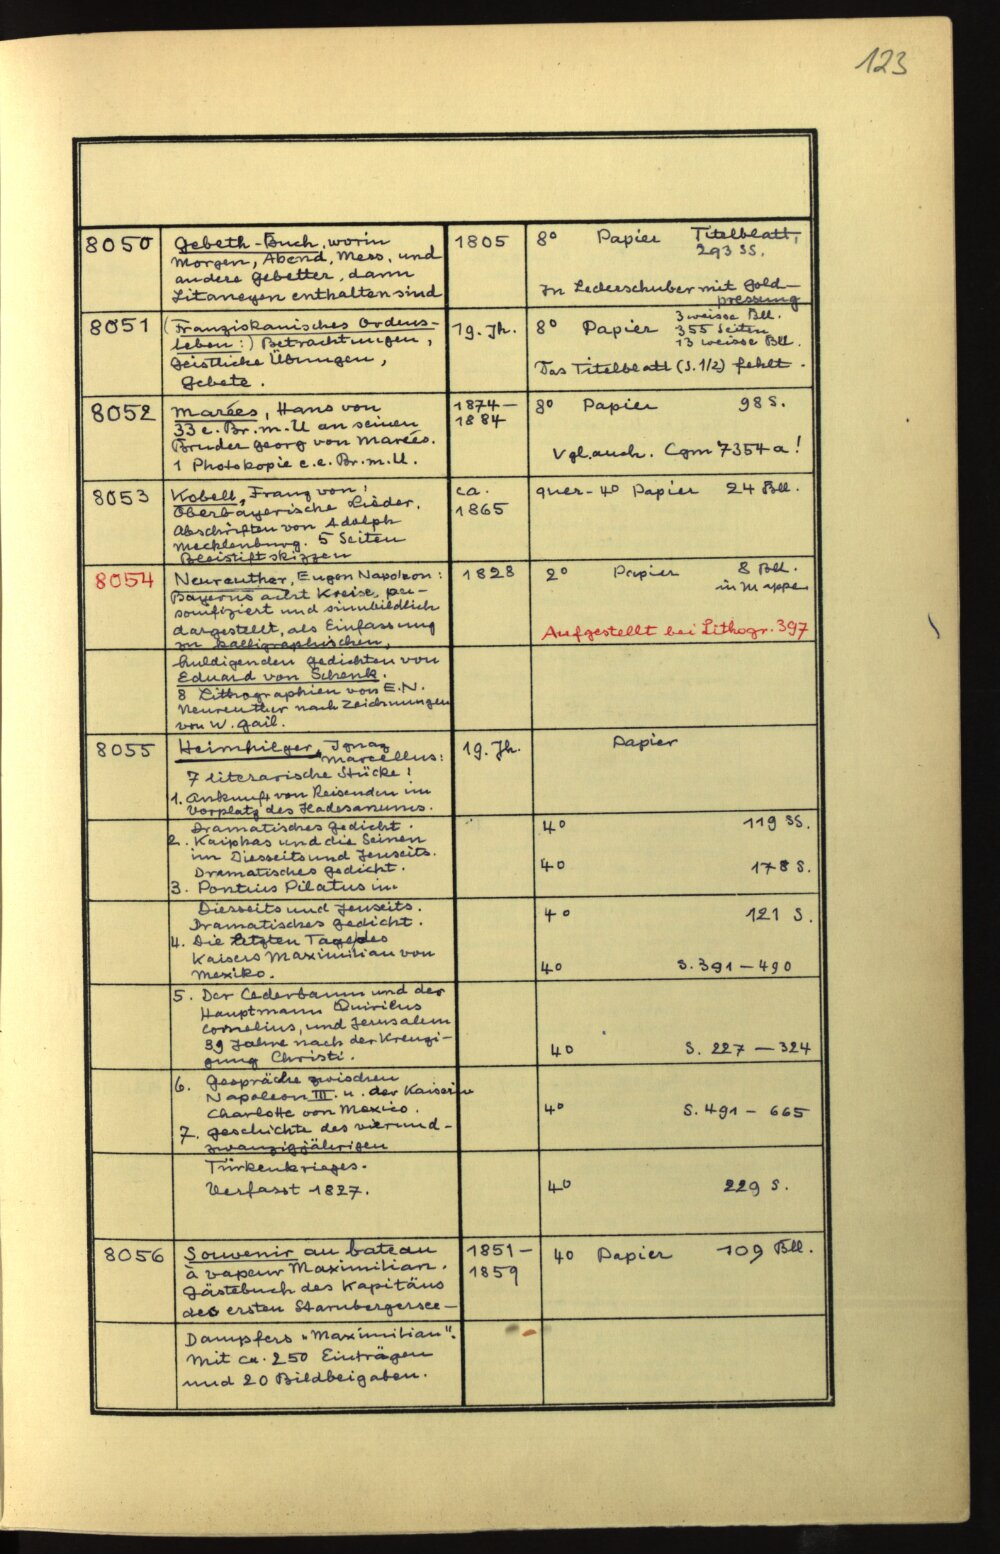 123
8050 Gebeth-Buch, worin 1805 8° Papier Titelblatt,
Morgen, Abend, Mess, und 293 SS.
andere Gebetter, dann
Litaneyen enthalten sind In Lederschuber mit Gold-
pressung
8051 (Franziskanisches Ordens- 19. Jh. 8° Papier 3 weisse Bll.
leben:) Betrachtungen, 355 Seiten
Geistliche Übungen, 13 weisse Bll.
Gebete. Das Titelblatt (S. 1/2) fehlt.
8052 Marées, Hans von 1874- 8° Papier 98 S.
33 e. Br. m. U an seinen 1884
Bruder Georg von Marées.
1 Photokopie e. e. Br. m. U. Vgl. auch. Cgm 7354a!
8053 Kobell, Franz von: ca. quer-4° Papier 24 Bll.
Oberbayerische Lieder. 1865
Abschriften von Adolph
Mecklenburg. 5 Seiten
Bleistiftskizzen
8054 Neureuther, Eugen Napoleon: 1828 2° Papier 8 Bll.
Bayerns acht Kreise, per- in Mappe
sonifiziert und sinnbildlich
dargestellt, als Einfassung Aufgestellt bei Lithogr. 397
zu kalligraphischen,
huldigenden Gedichten von
Eduard von Schenk.
8 Lithographien von E.N.
Neureuther nach Zeichnungen
von W. Gail.
8055 Heimhilger, Ignaz 19. Jh. Papier
Marcellus:
7 literarische Stücke:
1. Ankunft von Reisenden im
Vorplatz des Hadesanums.
Dramatisches Gedicht. 4° 119 SS.
2. Kaiphas und die Seinen
im Diesseits und Jenseits.
Dramatisches Gedicht. 4° 178 S.
3. Pontius Pilatus im
Diesseits und Jenseits. 4° 121 S.
Dramatisches Gedicht.
4. Die letzten Tage des
Kaisers Maximilian von
Mexiko. 4° S. 391-490
5. Der Cederbaum und der
Hauptmann Quirilus
Cornelius, und Jerusalem
39 Jahre nach der Kreuzi-
gung Christi. 4° S. 227-324
6. Gespräche zwischen
Napoleon III. u. der Kaiserin
Charlotte von Mexico. 4° S. 491-665
7. Geschichte des vierund-
zwanzigjährigen
Türkenkrieges.
Verfasst 1827. 4° 229 S.
8056 Souvenir au bateau 1851- 4° Papier 109 Bll.
à vapeur Maximilian. 1859
Gästebuch des Kapitäns
des ersten Starnbergersee-
Dampfers "Maximilian".
Mit ca. 250 Einträgen
und 20 Bildbeigaben.